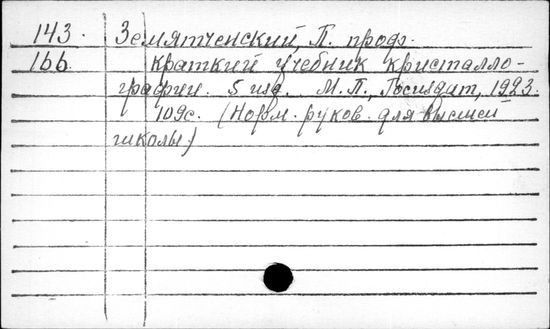 143. Земятченский, П. проф.
166. Краткий учебник кристалло-
графии. 5 изд. М. П., Госиздат, 1923.
109с. (Норм. руков. для высшей
школы)